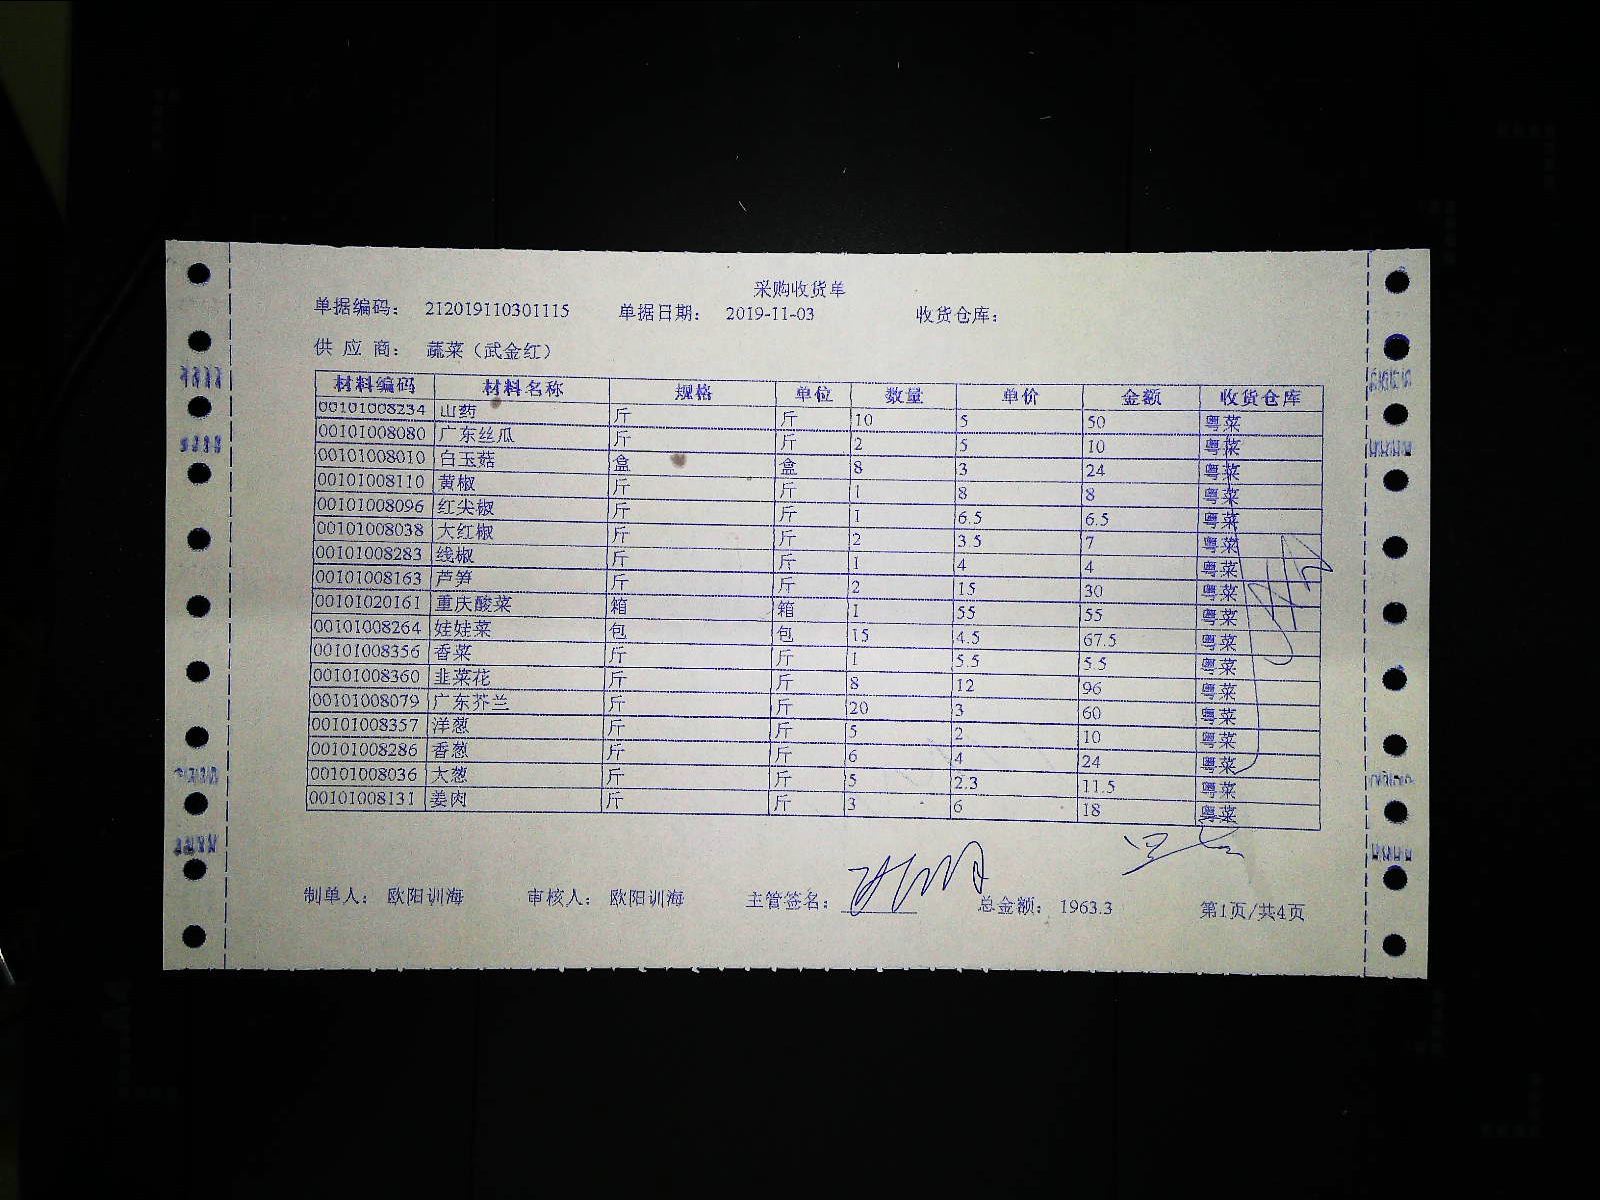 采购收货单
单据编码： 212019110301115 单据日期： 2019-11-03 收货仓库：
供 应 商： 蔬菜（武金红）
材料编码 材料名称 规格 单位 数量 单价 金额 收货仓库
00101008234 山药 斤 斤 10 5 50 粤菜
00101008080 广东丝瓜 斤 斤 2 5 10 粤菜
00101008010 白玉菇 盒 盒 8 3 24 粤菜
00101008110 黄椒 斤 斤 1 8 8 粤菜
00101008096 红尖椒 斤 斤 1 6.5 6.5 粤菜
00101008038 大红椒 斤 斤 2 3.5 7 粤菜
00101008283 线椒 斤 斤 1 4 4 粤菜
00101008163 芦笋 斤 斤 2 15 30 粤菜
00101020161 重庆酸菜 箱 箱 1 55 55 粤菜
00101008264 娃娃菜 包 包 15 4.5 67.5 粤菜
00101008356 香菜 斤 斤 1 5.5 5.5 粤菜
00101008360 韭菜花 斤 斤 8 12 96 粤菜
00101008079 广东芥兰 斤 斤 20 3 60 粤菜
00101008357 洋葱 斤 斤 5 2 10 粤菜
00101008286 香葱 斤 斤 6 4 24 粤菜
00101008036 大葱 斤 斤 5 2.3 11.5 粤菜
00101008131 姜肉 斤 斤 3 6 18 粤菜
制单人： 欧阳训海 审核人： 欧阳训海 主管签名： 总金额： 1963.3 第1页/共4页